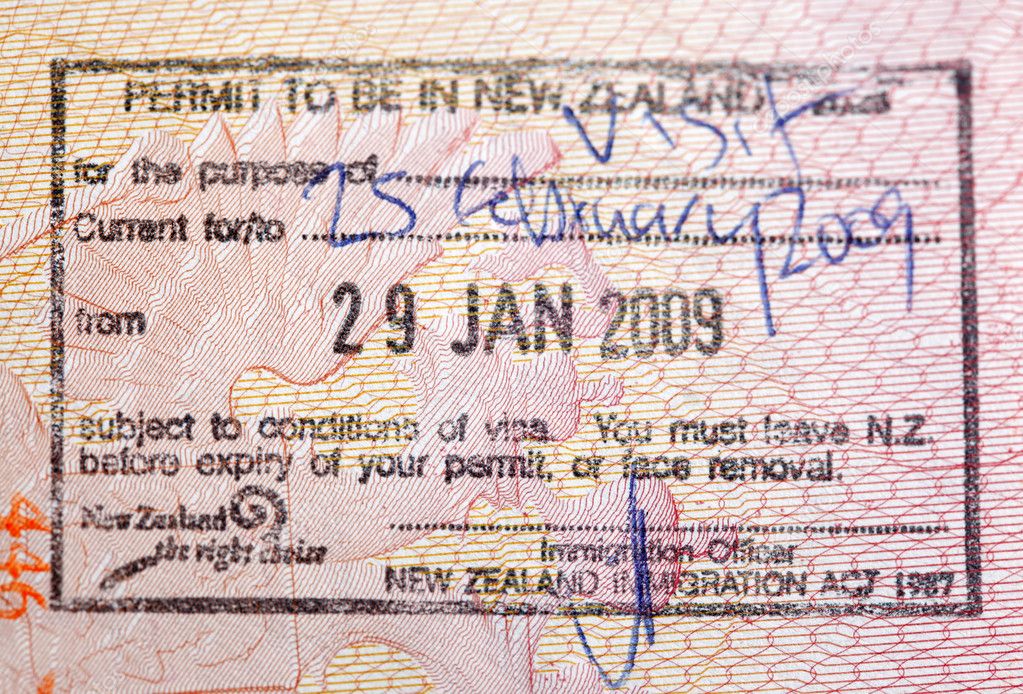 PERMIT TO BE IN NEW ZEALAND
for the purposes of visit
Current for/to 25 February 2009
from 29 JAN 2009
subject to conditions of visa. You must leave N.Z.
before expiry of your permit, or face removal.
New Zealand
the right choice
Immigration Officer
NEW ZEALAND IMMIGRATION ACT 1987
446